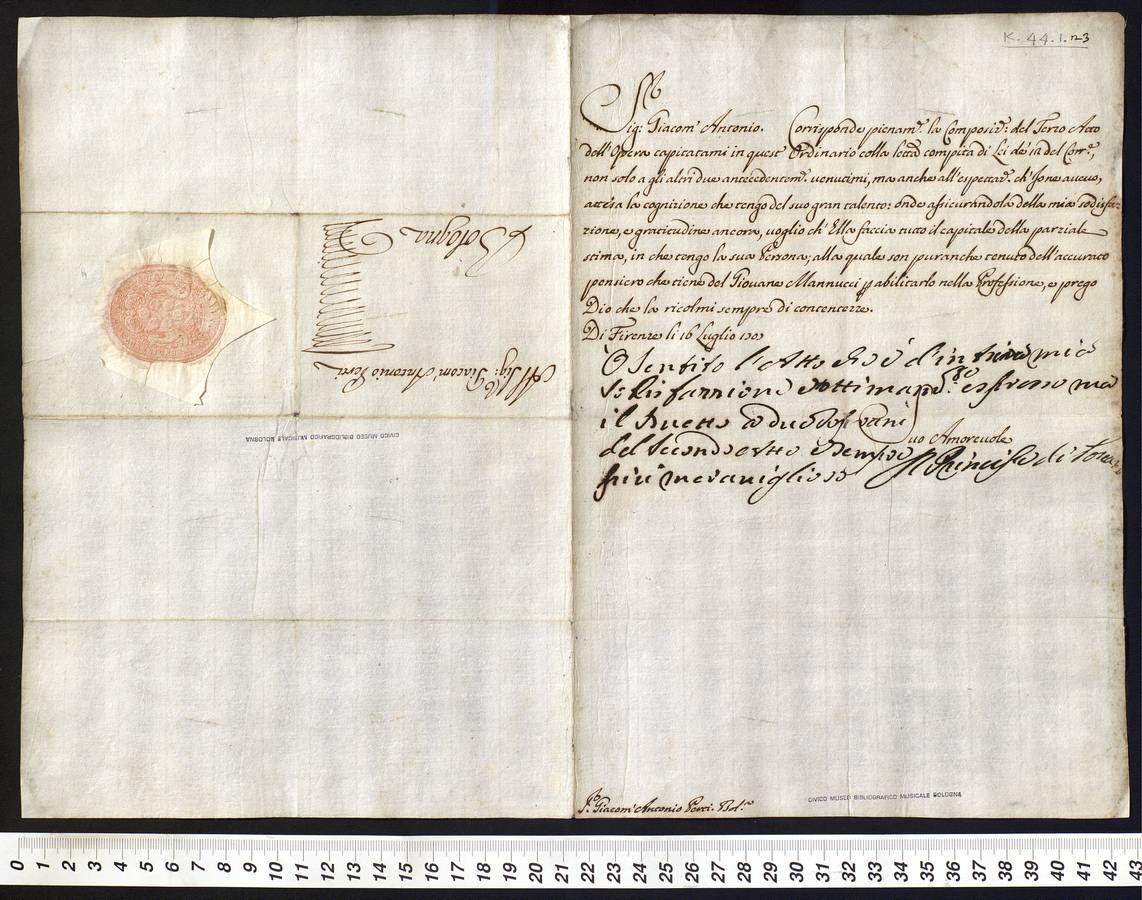 K. 44. 1. n3
Sig.r Giacom' Antonio. Corrisponde pienam.e la Composiz.e del Terzo Atto
dell'Opera capitatami in quest' Ordinario colla lett.a compita di Lei de' 12 del Corr.e,
non solo a gli altri due antecedentem.e venutimi, ma anche all'espettaz.e ch'Io ne avevo,
attesa la cognizione che tengo del suo gran talento: onde assicurandola della mia sodisfa-
zione, e gratitudine ancora, voglio ch'Ella faccia tutto il capitale della parziale
stima, in che tengo la sua Persona; alla quale son pur anche tenuto dell'accurato
pensiero che tiene del Giovane Mannucci p abilitarlo nella Professione, e prego
Dio che la ricolmi sempre di contentezze.
Di Firenze li 16 Luglio
O sentito l'Atto ed è d'intera mia
sodisfazzione e ottimam.e espresso ma
il duetto a due soprani
uo Amorevole
del secondo atto è sempre
Il Principe di Tosca
più meraviglioso
S. Giacom' Antonio Perti. Bol.a
CIVICO MUSEO BIBLIOGRAFICO MUSICALE BOLOGNA
Al Sig.r Giacom' Antonio Perti
Bologna
CIVICO MUSEO BIBLIOGRAFICO MUSICALE BOLOGNA
0 1 2 3 4 5 6 7 8 9 10 11 12 13 14 15 16 17 18 19 20 21 22 23 24 25 26 27 28 29 30 31 32 33 34 35 36 37 38 39 40 41 42 43